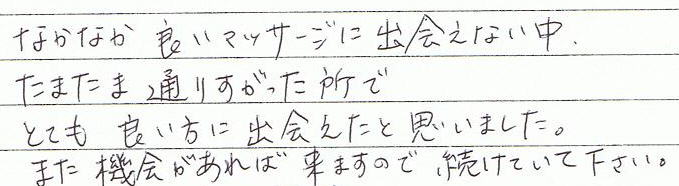 なかなか 良いマッサージに 出会えない中、
たまたま 通りすがった所で
とても 良い方に 出会えたと思いました。
また 機会があれば 来ますので、続けていて下さい。